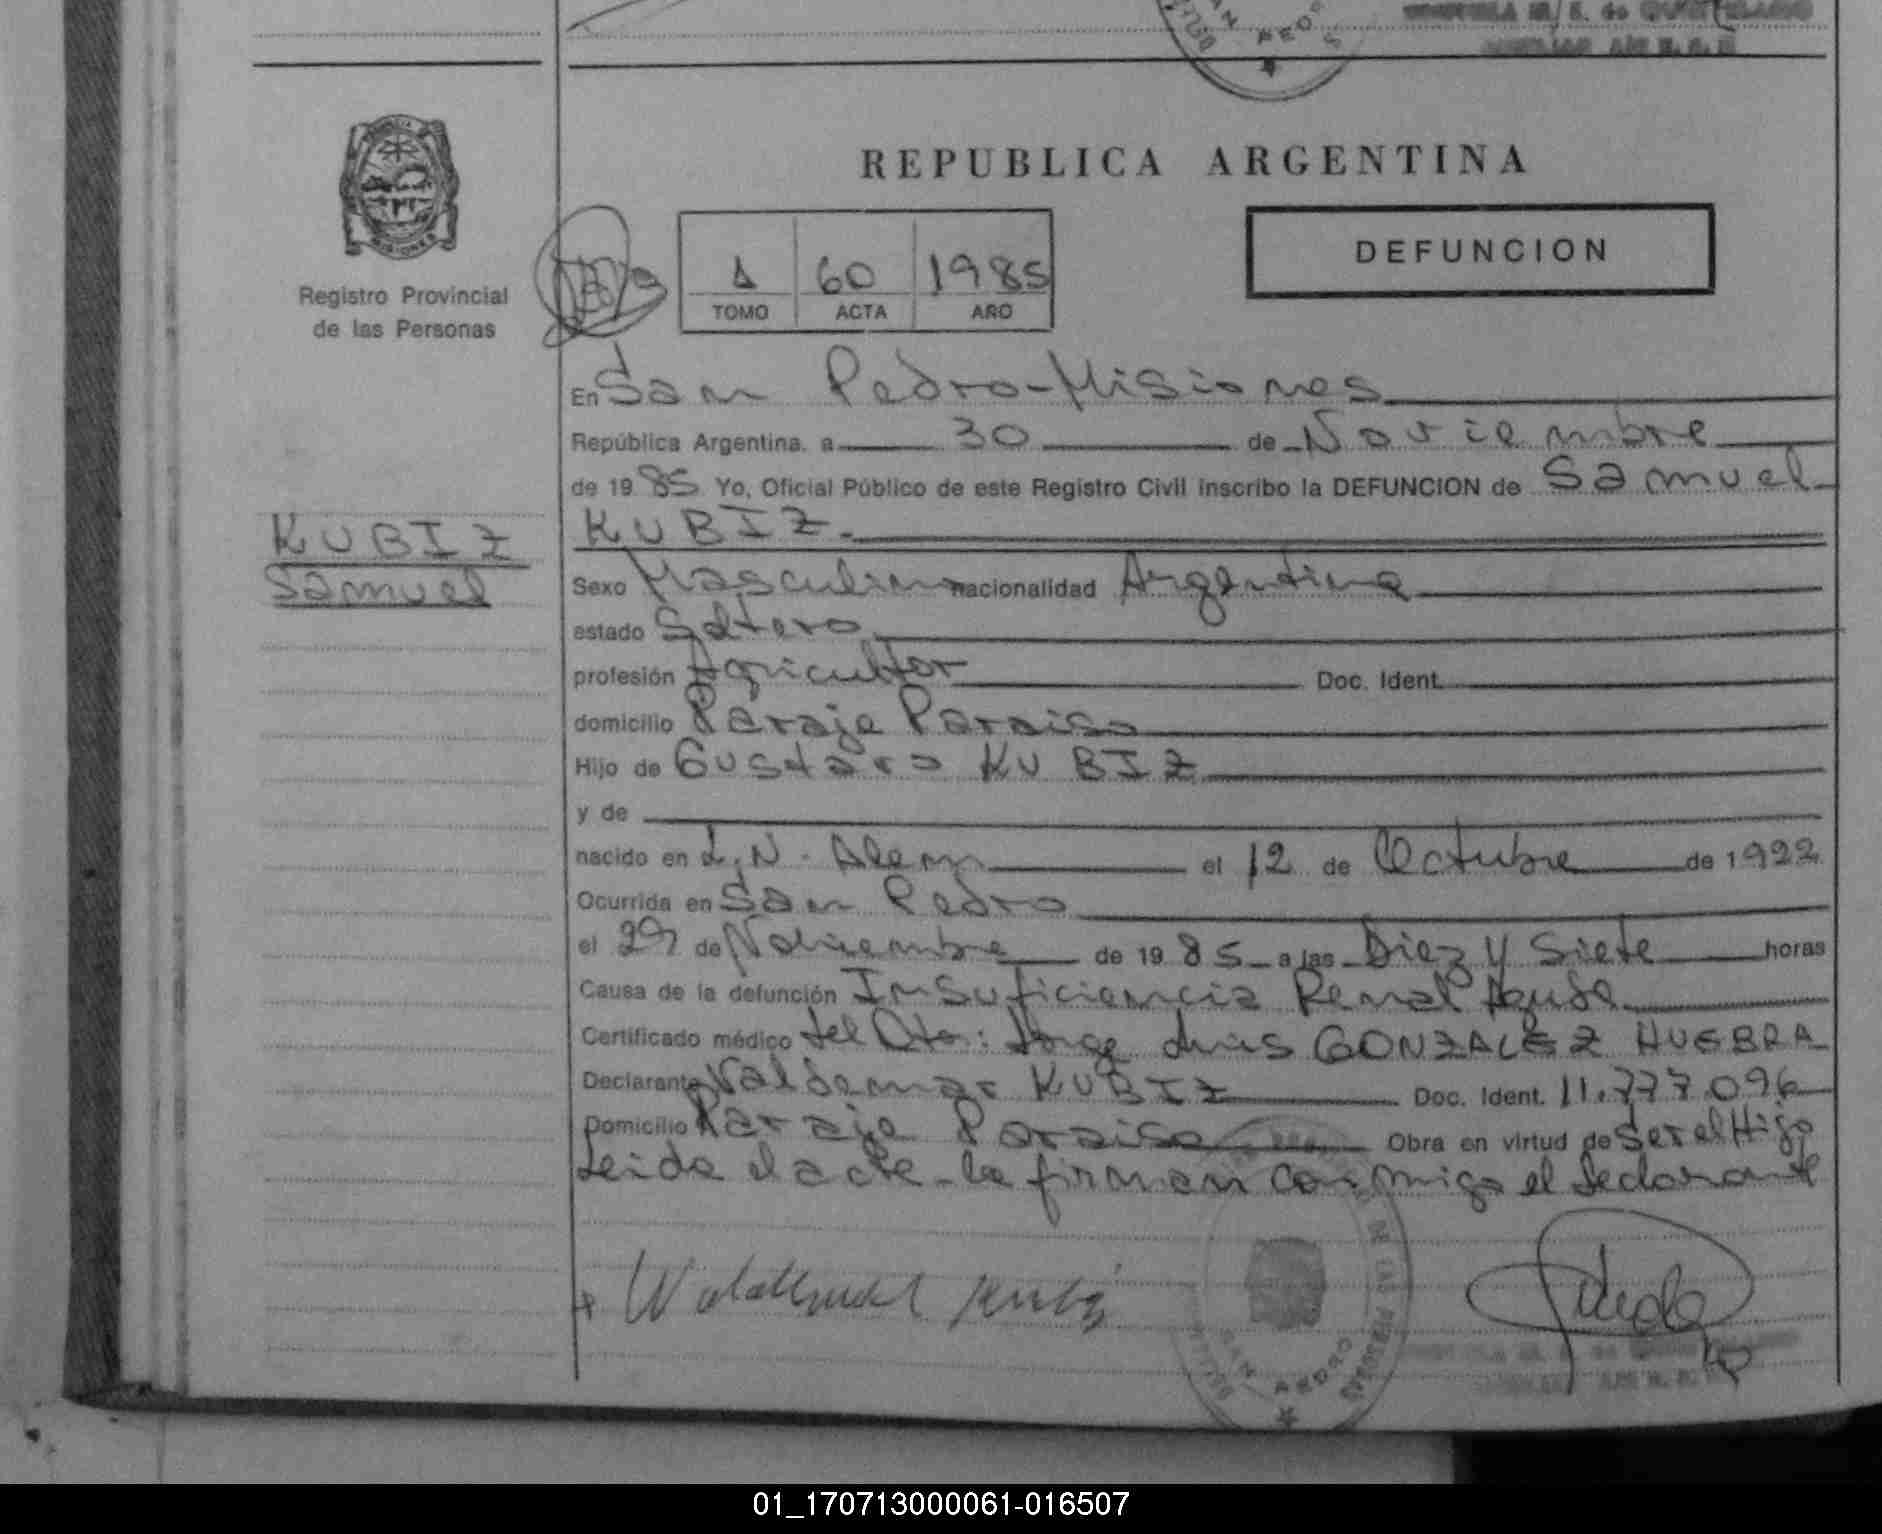 REPUBLICA ARGENTINA
DEFUNCION
Registro Provincial
de las Personas
1 60 1985
TOMO ACTA AÑO
En San Pedro-Misiones
República Argentina, a 30 de Noviembre
de 1985 Yo, Oficial Público de este Registro Civil inscribo la DEFUNCION de Samuel
KUBIZ.
KUBIZ
Samuel
Sexo Masculino nacionalidad Argentina
estado Soltero
profesión Agricultor Doc. Ident.
domicilio Paraje Paraiso
Hijo de Gustavo KUBIZ
y de
nacido en L.N. Alem el 12 de Octubre de 1922
Ocurrida en San Pedro
el 29 de Noviembre de 1985 a las Diez y Siete horas
Causa de la defunción Insuficiencia Renal Aguda
Certificado médico del Dto: Jorge Luis GONZALEZ HUEBRA
Declarante Valdemar KUBIZ Doc. Ident. 11.777.096
Domicilio Paraje Paraiso Obra en virtud de Ser el Hijo
Leida el acta la firman conmigo el declarante
DE LAS PERSONAS
SAN PEDRO
01_170713000061-016507